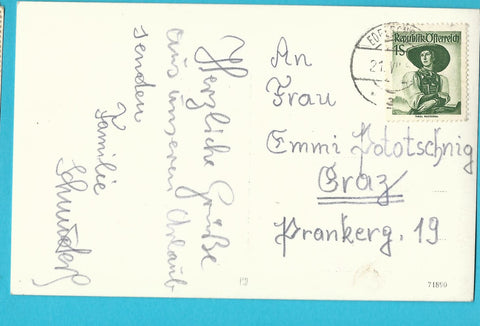 Herzliche Grüße
aus unseren Urlaub
senden
Familie
An
Frau
Emmi Pototschnig
Graz
Prankerg. 19
Republik Österreich
1S
21. VI
71890